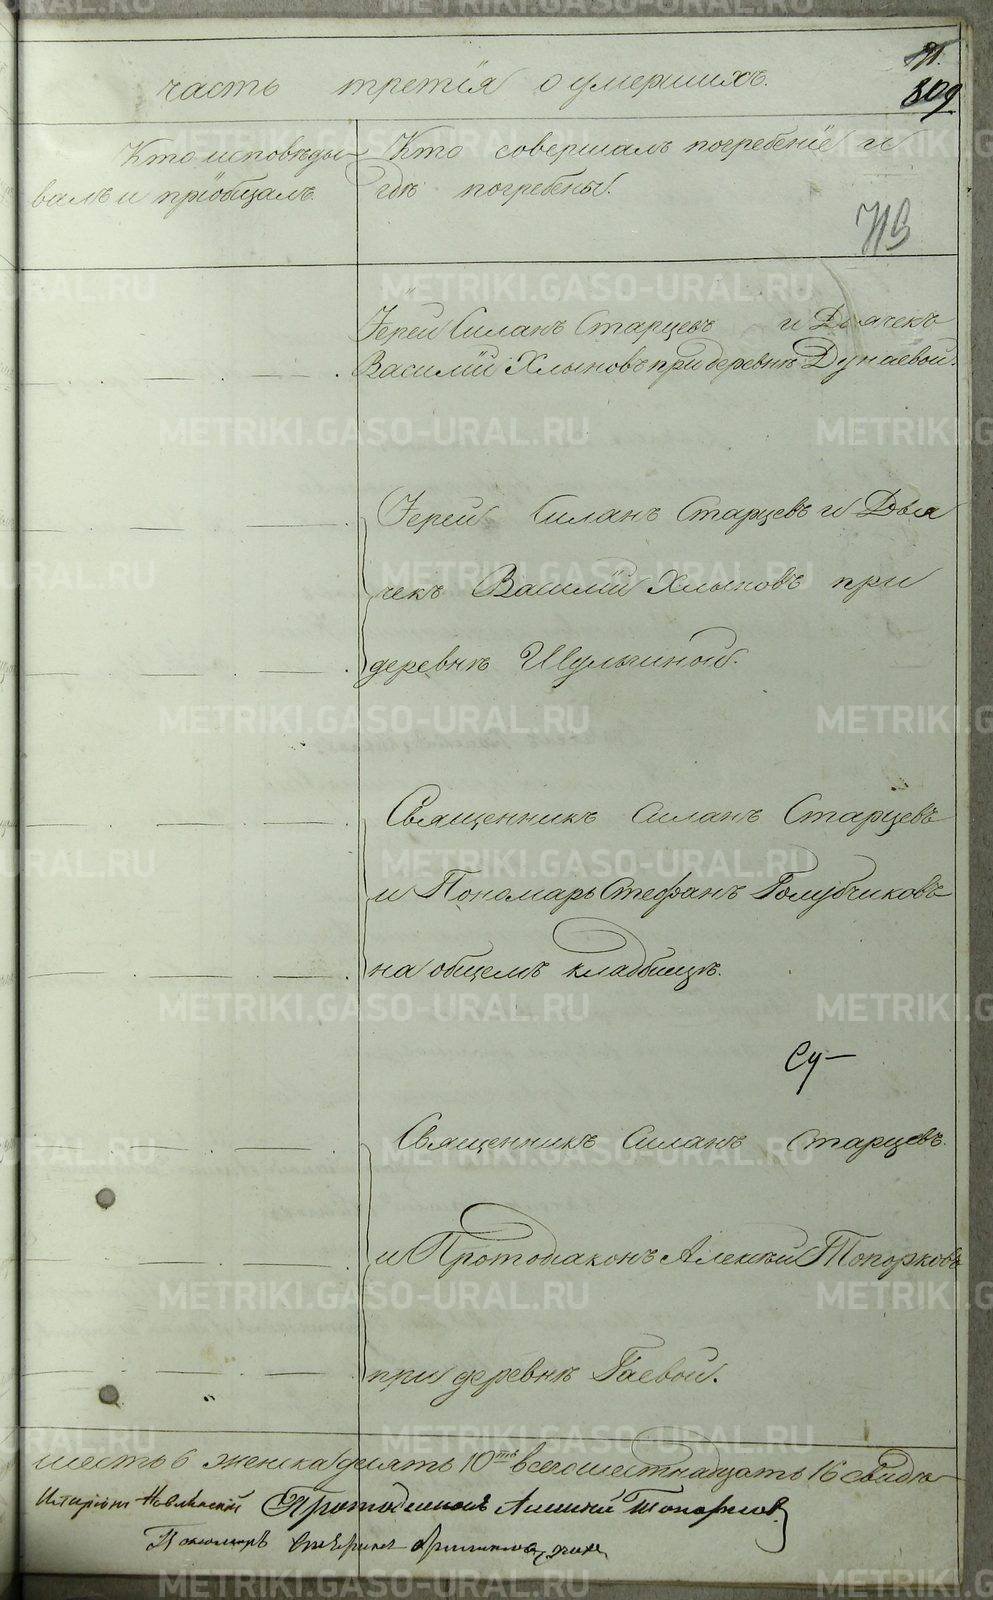 91.
809
часть третія о умершихъ.
Кто исповѣды
валъ и пріобщалъ.
Кто совершалъ погребеніе и
гдѣ погребены.
Іерей Силанъ Старцевъ и Дьячекъ
Василій Хлыновъ при деревнѣ Дунаевой.
Іерей Силанъ Старцевъ и Дья
чекъ Василій Хлыновъ при
деревнѣ Шульгиной.
Священникъ Силанъ Старцевъ
и Пономарь Стефанъ Голубчиковъ
на общемъ кладбищѣ.
Священникъ Силанъ Старцевъ
и Протодіаконъ Алексѣй Топорковъ
при деревнѣ Гаевой.
шесть 6 женска десять 10 всего шестнадцать 16
Протодіаконъ Алексѣй Топорковъ
Пономарь
METRIKI.GASO-URAL.RU